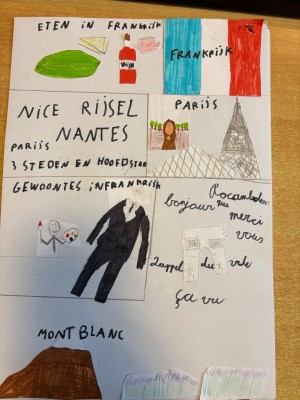 ETEN IN FRANKRIJK
FRANKRIJK
NICE RIJSEL
NANTES
PARIJS
3 STEDEN EN HOOFDSTAD
PARIJS
GEWOONTES IN FRANKRIJK
bonjour
merci
vous
du
ça va
MONT BLANC